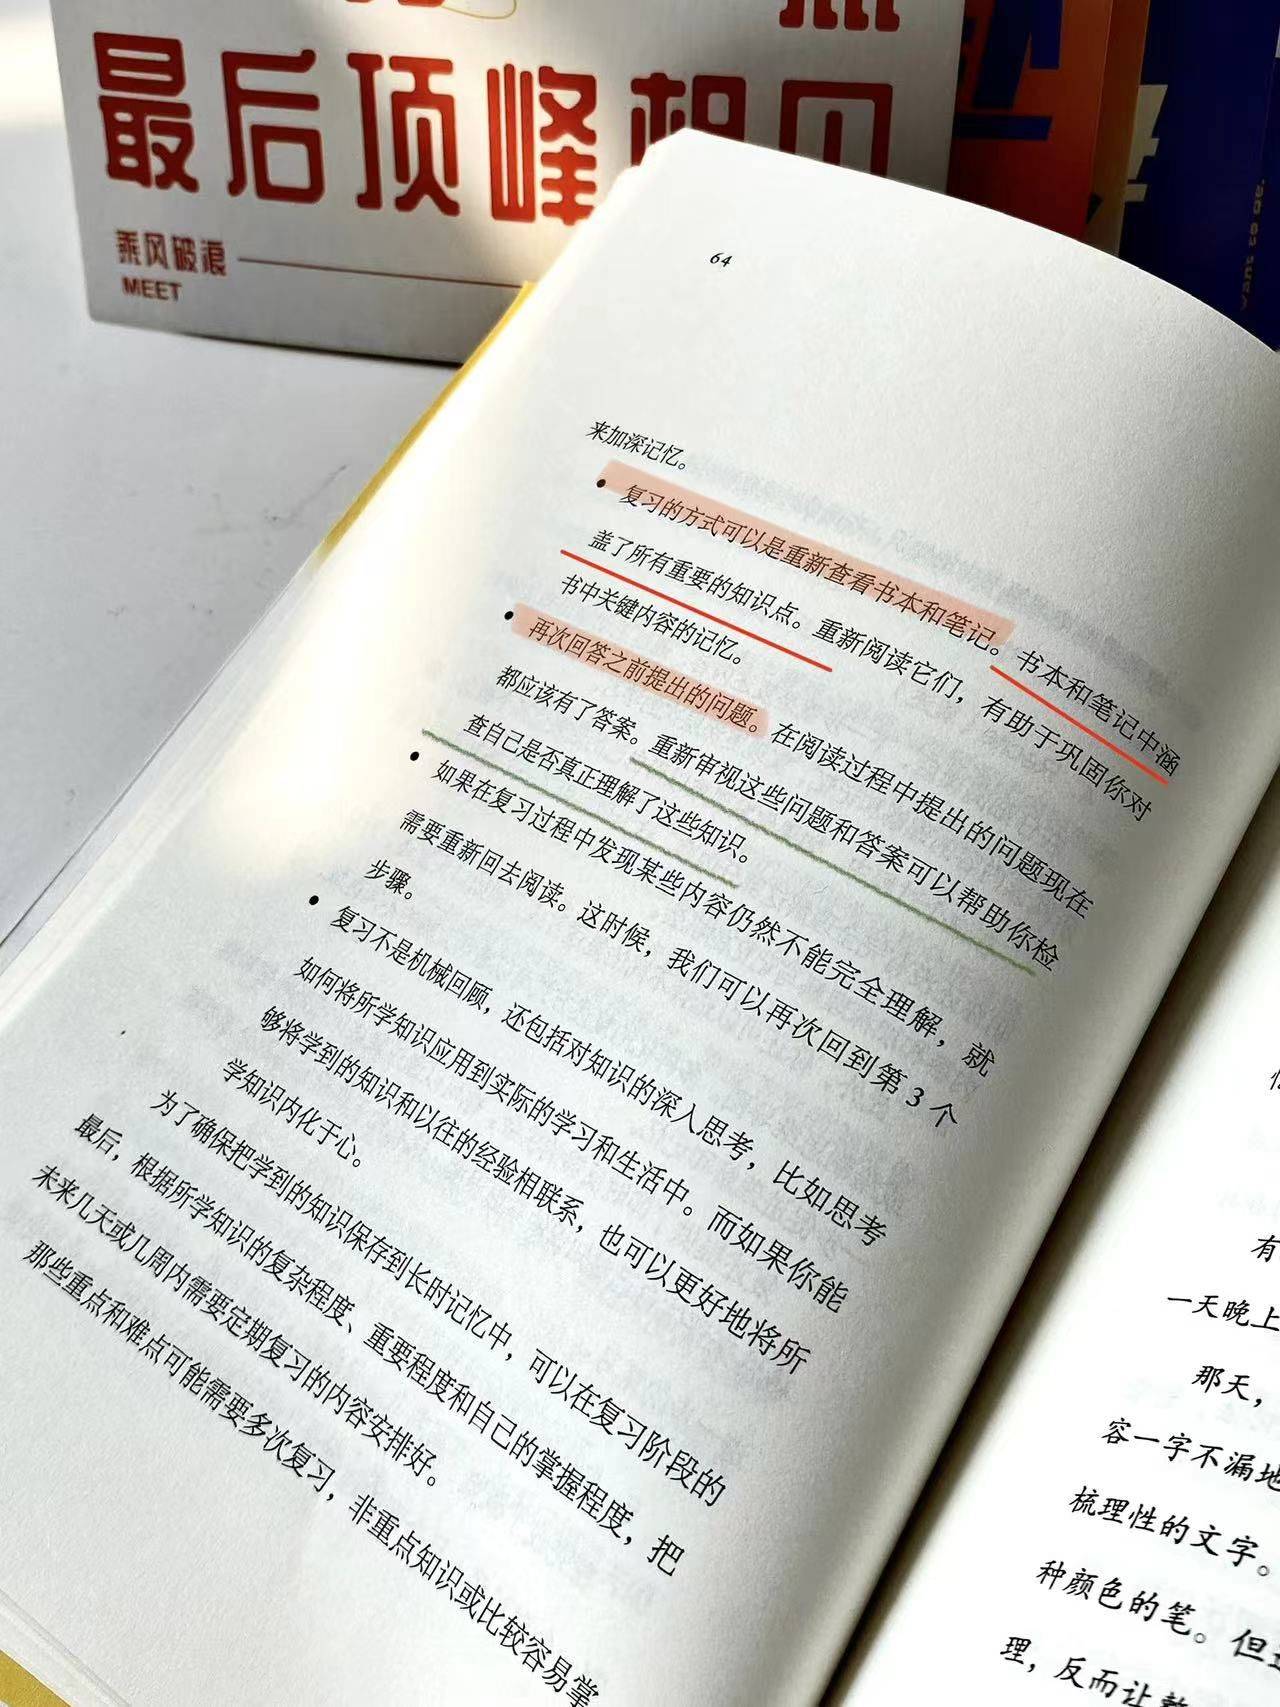 最后顶峰相见
乘风破浪
MEET
64
来加深记忆。
• 复习的方式可以是重新查看书本和笔记。书本和笔记中涵
盖了所有重要的知识点。重新阅读它们，有助于巩固你对
书中关键内容的记忆。
• 再次回答之前提出的问题。在阅读过程中提出的问题现在
都应该有了答案。重新审视这些问题和答案可以帮助你检
查自己是否真正理解了这些知识。
• 如果在复习过程中发现某些内容仍然不能完全理解，就
需要重新回去阅读。这时候，我们可以再次回到第3个
步骤。
• 复习不是机械回顾，还包括对知识的深入思考，比如思考
如何将所学知识应用到实际的学习和生活中。而如果你能
够将学到的知识和以往的经验相联系，也可以更好地将所
学知识内化于心。
为了确保把学到的知识保存到长时记忆中，可以在复习阶段的
最后，根据所学知识的复杂程度、重要程度和自己的掌握程度，把
未来几天或几周内需要定期复习的内容安排好。
那些重点和难点可能需要多次复习，非重点知识或比较容易掌
有
一天晚上
那天，
容一字不漏地
梳理性的文字。
种颜色的笔。但
理，反而让